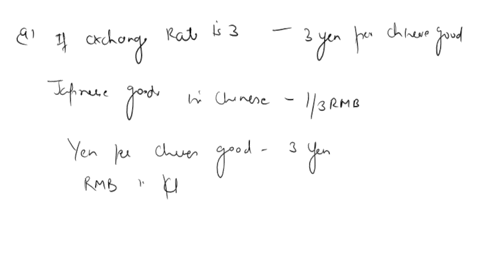 a) If exchange Rate is 3 — 3 yen per chinese good
Japinese goods in Chinese - 1/3 RMB
Yen per chinese good - 3 Yen
RMB